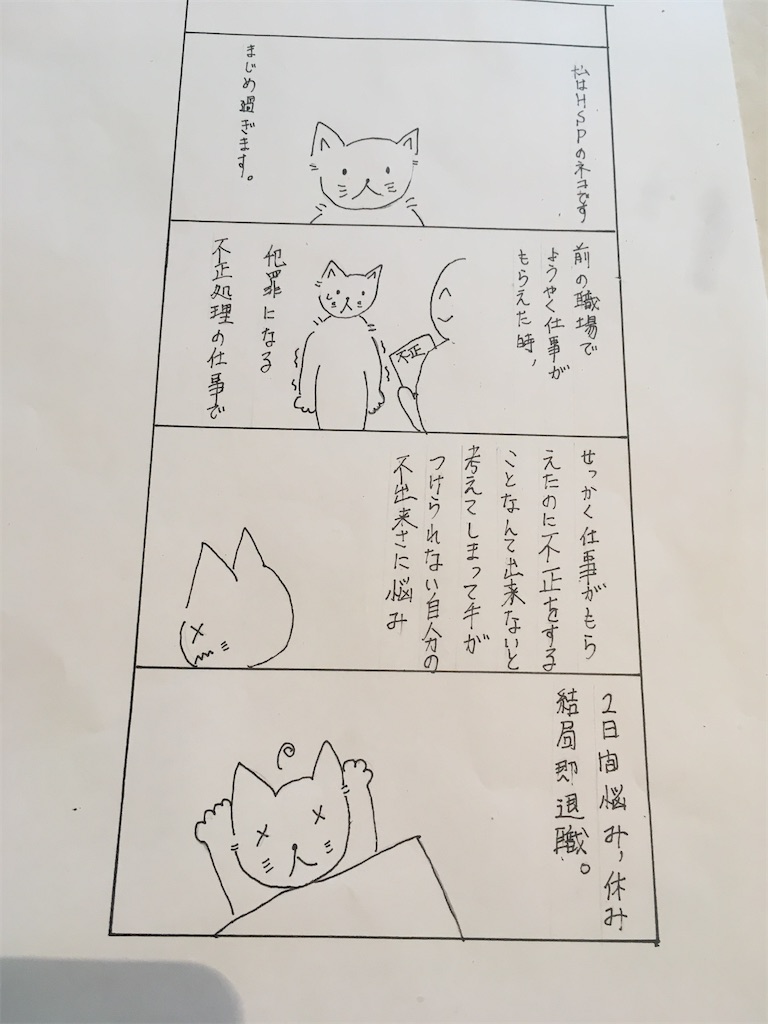 私はHSPのネコです
まじめ過ぎます。
前の職場で
ようやく仕事が
もらえた時、
不正
犯罪になる
不正処理の仕事で
せっかく仕事がもら
えたのに不正をする
ことなんて出来ないと
考えてしまって手が
つけられない自分の
不出来さに悩み
2日間悩み、休み
結局即退職。